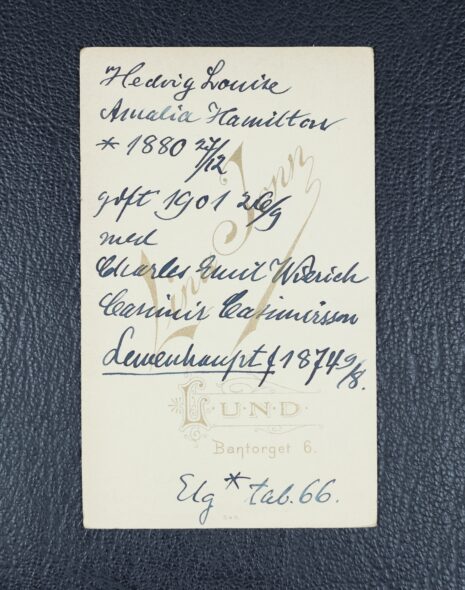 Hedvig Louise
Amalia Hamilton
* 1880 27/12
gift 1901 26/9
med
Charles Emil Wierich
Casimir Casimirsson
Lewenhaupt f 1874 9/8.
Lina Jonn
LUND
Bantorget 6.
Elg * tab. 66.